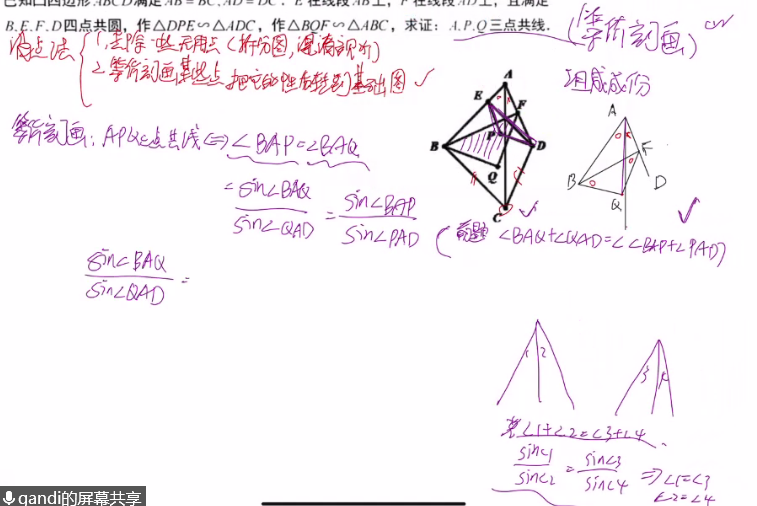 已知凸四边形 ABCD 满足 AB = BC, AD = DC. E 在线段 AB 上, F 在线段 AD 上, 且满足
B,E,F,D四点共圆, 作△DPE∽△ADC, 作△BQF∽△ABC, 求证: A,P,Q三点共线. (等价刻画)
消点法
1. 去除一些无用点(拆分图,
2. 等价刻画某些点, 把它的性质转到基础图 ✓
组成成份
等价刻画: APQ三点共线 ⇔ ∠BAP=∠BAQ
= sin∠BAQ / sin∠QAD = sin∠BAP / sin∠PAD
(前题 ∠BAQ+∠QAD=∠BAP+∠PAD)
sin∠BAQ / sin∠QAD =
A
E
F
P
B
D
Q
C
A
F
B
D
Q
1 2
3 4
若∠1+∠2=∠3+∠4
sin∠1 / sin∠2 = sin∠3 / sin∠4 ⇒ ∠1=∠3
∠2=∠4
qandi的屏幕共享